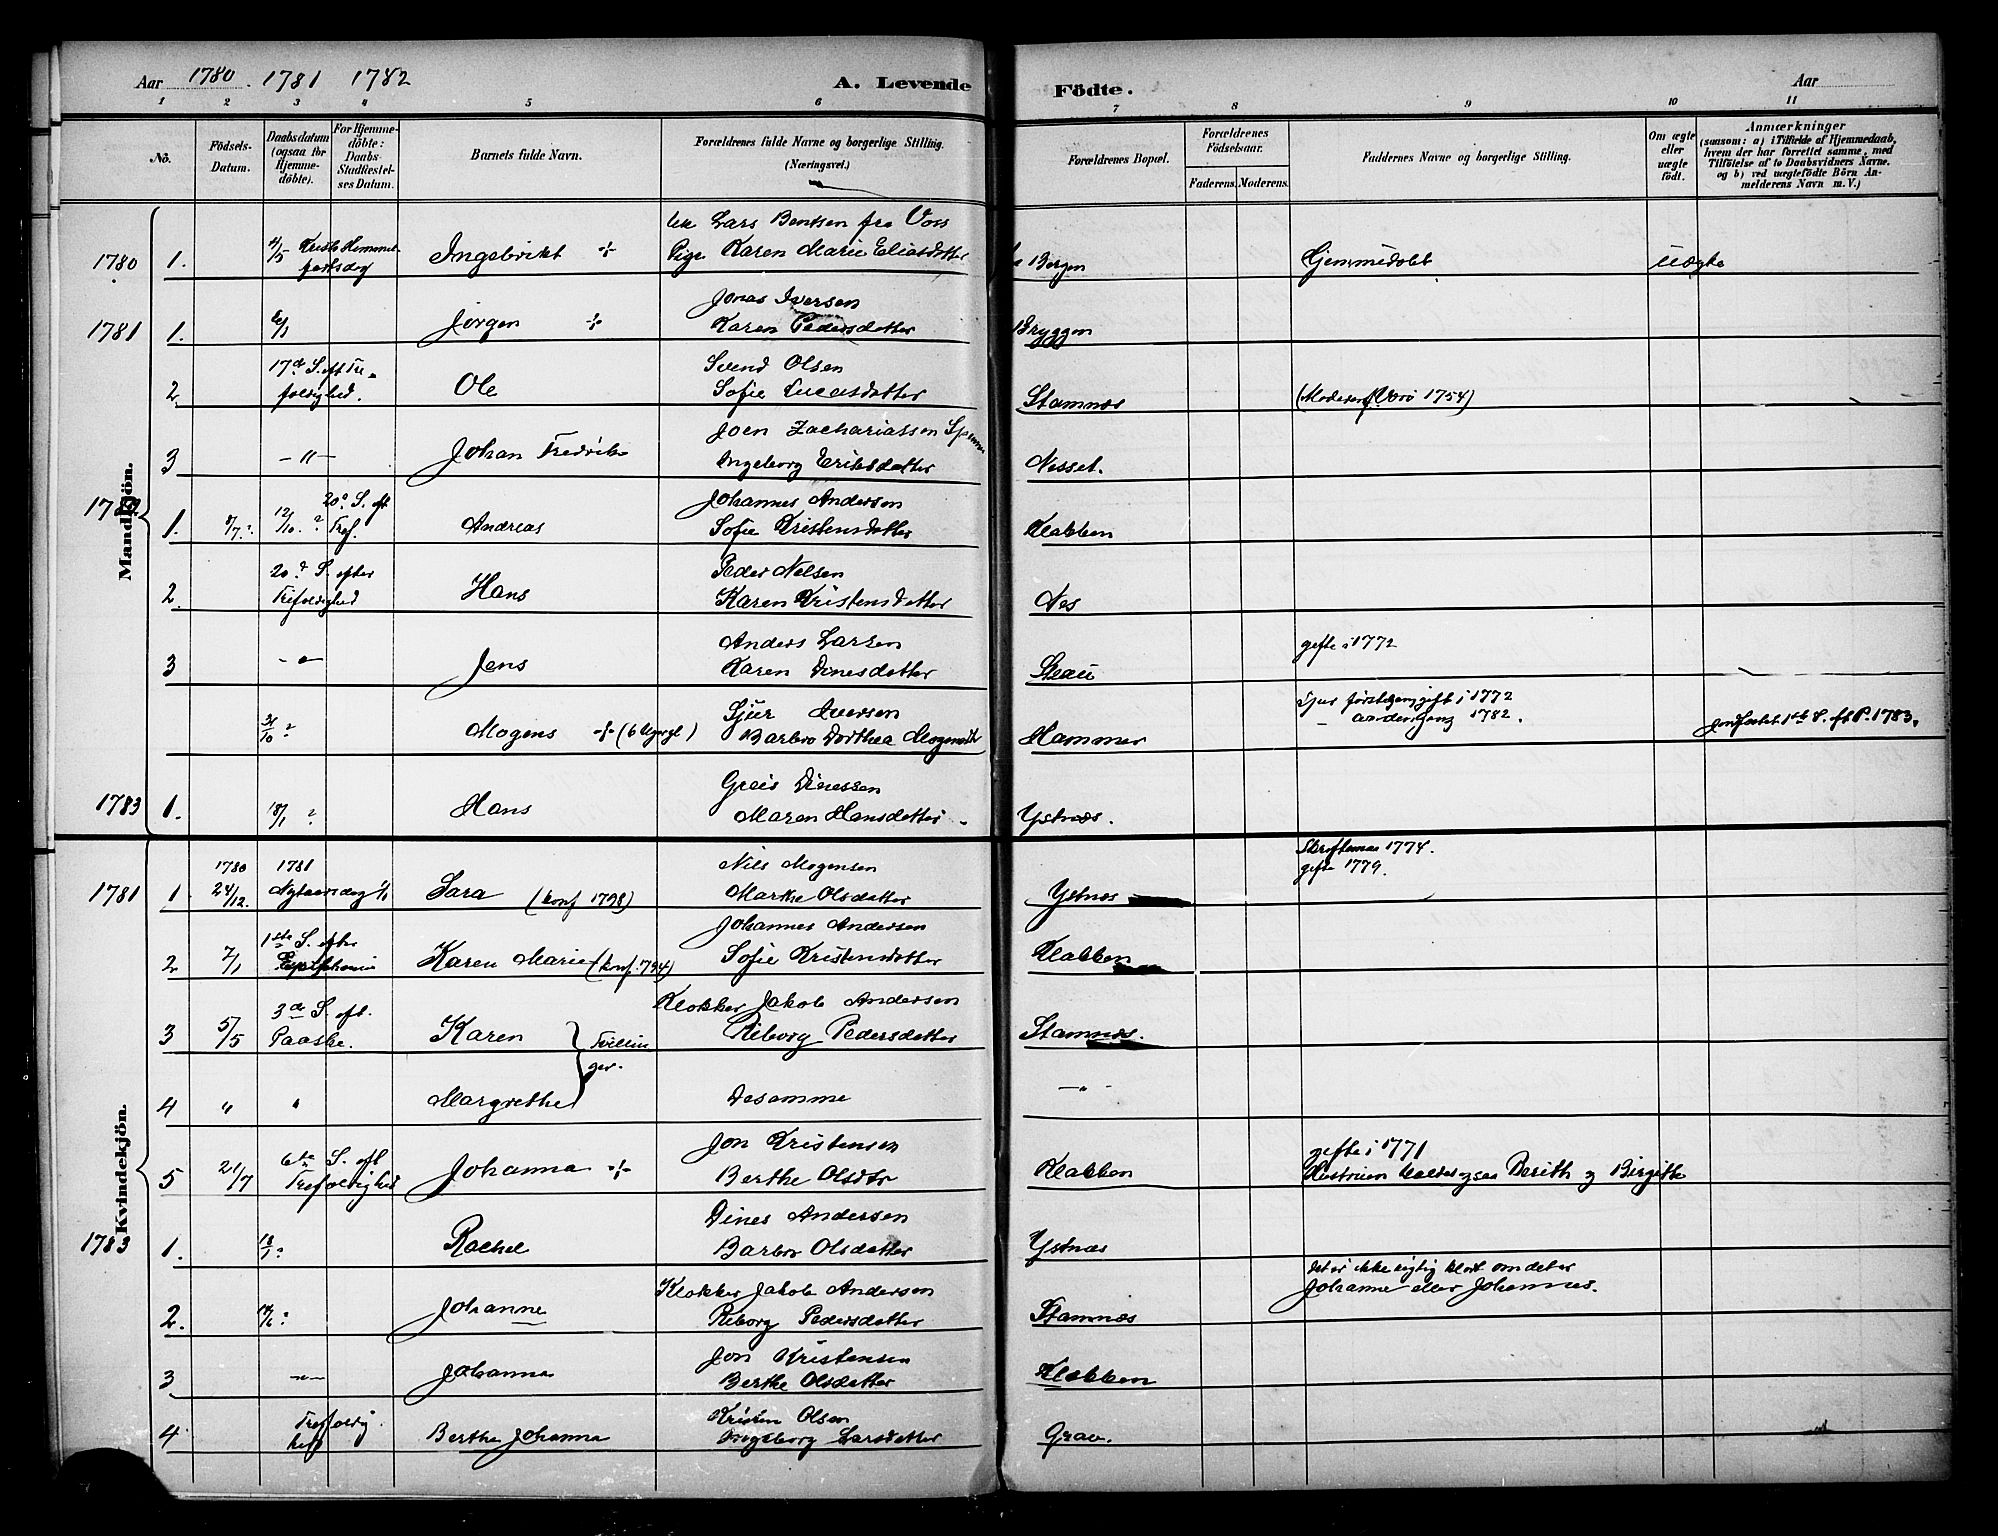 Aar 1780. 1781 1782
A. Levende Födte.
Aar
1 2 3 4 5 6 7 8 9 10 11
No.
Födsels-Datum.
Daabsdatum (ogsaa for Hjemmedöbte).
For Hjemmedöbte: Daabs-Stadfæstelses Datum.
Barnets fulde Navn.
Forældrenes fulde Navne og borgerlige Stilling. (Næringsvei.)
Forældrenes Bopæl.
Forældrenes Födselsaar.
Faderens. Moderens.
Faddernes Navne og borgerlige Stilling.
Om ægte eller uægte födt.
Anmærkninger
(saasom: a) i Tilfælde af Hjemmedaab, hvem der har forrettet samme, med Tilföielse af to Daabsvidners Navne. og b) ved uægtefödte Börn Anmelderens Navn m. V.)
Mandkjön.
Lars Bentsen fra Voss
1780 1. 4/5 Kristi Himmelfartsdag Ingebrikt ÷ Pige Karen Marie Eliasdatter Bergen Hjemmedøbt Uægte
Jonas Iversen
1781 1. 6/1 Jørgen ÷ Karen Pedersdatter Bryggen
17de S. eft Tre- Svend Olsen
2 foldighed. Ole Sofie Lucasdatter Stamnæs (Moderen f. Værø 1754)
Joen Zachariassen
3 — " — Johan Fredrik Ingeborg Eriksdatter Nesset.
20de S. eft Johannes Andersen
1782 1. 5/7 ? 12/10 ? Tref. Andreas Sofie Kristensdatter Klakken
20de S. efter Peder Nelsen
2. Trefoldighed Hans Karen Kristensdatter Nes
Anders Larsen gifte i 1772
3 — " — Jens Karen Dinesdatter
Sjur Iversen Sjur første gang gift i 1772
31/10 ? Mogens ÷ Barbro Dorthea Mogensdtr Hammer — anden gang 1782. 1ste S. eft P. 1783.
Greis Dinessen
1783 1. 18/1 ? Hans Maren Hansdatter. Ystnæs.
Kvindekjön.
1780 1781 Nils Mogensen 1774.
gifte 1779.
1781 1. 24/12. Nytaarsdag 1/1 Sara (konf 1798) Marthe Olsdatter Ystnæs
1ste S. efter Johannes Andersen
2 7/1 Epiphania Karen Marie (konf. 794) Sofie Kristensdatter Klakken
3de S. eft. Klokker Jakob Andersen
3 5/5 Paaske. Karen Riborg Pedersdatter Stamnæs.
Tvillinger.
4 " " Margrethe Desamme — " —
6te S. eft Jon Kristensen gifte i 1771
5 21/7 Trefoldighed Johanna ÷ Berthe Olsdtr Klakken Hustruen kaldes ogsaa Berith og Birgitte
Dines Andersen
1783 1. 18/1 ? Rachel Barbro Olsdatter Ystnæs
Klokker Jakob Andersen det er ikke rigtig klart om det er
2. ? Johanne Riborg Pedersdatter Stamnæs Johanne eller Johannes.
Jon Kristensen
3 — " — Johanna Berthe Olsdatter Klakken
Trefoldig- Kristen Olsen
4 hed Berthe Johanna Ingeborg Larsdatter Grav.